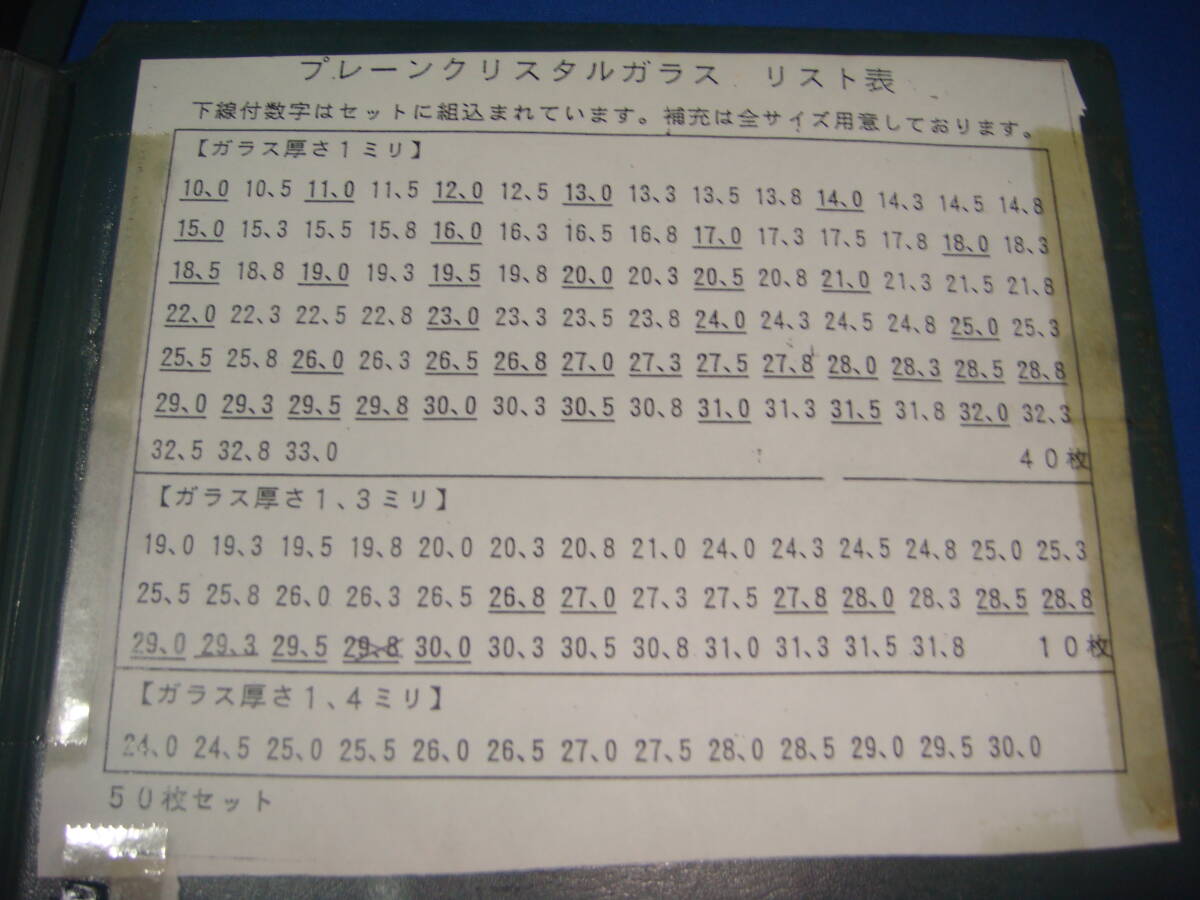 プレーンクリスタルガラス　リスト表
下線付数字はセットに組込まれています。補充は全サイズ用意しております。
【ガラス厚さ1ミリ】
10、0 10、5 11、0 11、5 12、0 12、5 13、0 13、3 13、5 13、8 14、0 14、3 14、5 14、8
15、0 15、3 15、5 15、8 16、0 16、3 16、5 16、8 17、0 17、3 17、5 17、8 18、0 18、3
18、5 18、8 19、0 19、3 19、5 19、8 20、0 20、3 20、5 20、8 21、0 21、3 21、5 21、8
22、0 22、3 22、5 22、8 23、0 23、3 23、5 23、8 24、0 24、3 24、5 24、8 25、0 25、3
25、5 25、8 26、0 26、3 26、5 26、8 27、0 27、3 27、5 27、8 28、0 28、3 28、5 28、8
29、0 29、3 29、5 29、8 30、0 30、3 30、5 30、8 31、0 31、3 31、5 31、8 32、0 32、3
32、5 32、8 33、0 40枚
【ガラス厚さ1、3ミリ】
19、0 19、3 19、5 19、8 20、0 20、3 20、8 21、0 24、0 24、3 24、5 24、8 25、0 25、3
25、5 25、8 26、0 26、3 26、5 26、8 27、0 27、3 27、5 27、8 28、0 28、3 28、5 28、8
29、0 29、3 29、5 29、8 30、0 30、3 30、5 30、8 31、0 31、3 31、5 31、8 10枚
【ガラス厚さ1、4ミリ】
24、0 24、5 25、0 25、5 26、0 26、5 27、0 27、5 28、0 28、5 29、0 29、5 30、0
50枚セット